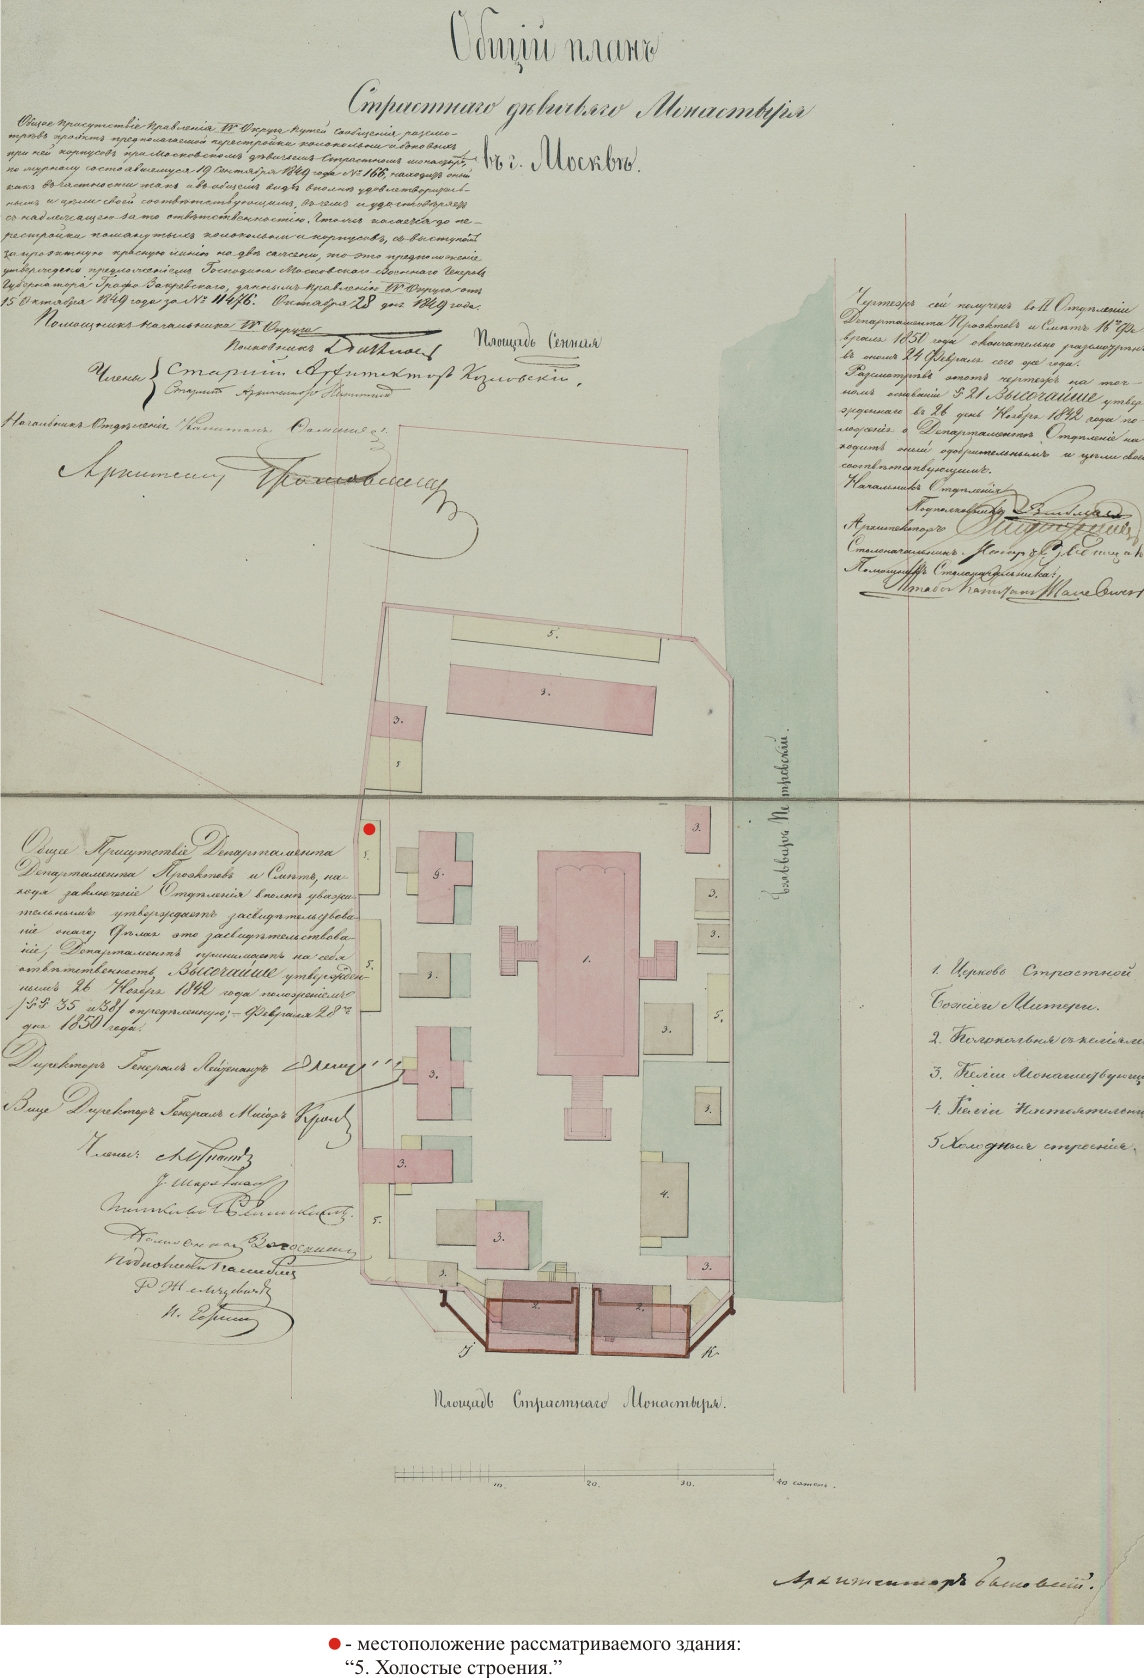 Общiй планъ
Страстнаго дѣвичьяго Монастыря
въ г. Москвѣ.
Общее присутствiе Правленiя IV Округа Путей сообщенiя разсмо-
трѣвъ проэктъ предполагаемой перестройки колокольни и боковыхъ
при ней корпусовъ при Московскомъ дѣвичьемъ Страстномъ монастырѣ,
по журналу состоявшемуся 19 Сентября 1849 года № 166, находитъ оный
какъ въ частности такъ и въ общемъ видѣ вполнѣ удовлетворитель-
нымъ и цѣли своей соотвѣтствующимъ, въ чемъ и удостовѣряетъ
съ надлежащею за то отвѣтственностiю. Что же касается до пе-
рестройки помянутыхъ колокольни и корпусовъ, съ выступомъ
за проэктную красную линiю на двѣ сажени, то это предположенiе
утверждено предложенiемъ Господина Московскаго Военнаго Генералъ
Губернатора Графа Закревскаго, даннымъ Правленiю IV Округа отъ
15 Октября 1849 года за № 11476. Октября 28 дня 1849 года.
Помощникъ Начальника IV Округа
Полковникъ
Члены
Старшiй Архитекторъ Козловскiй.
Старшiй Архитекторъ
Начальникъ Отдѣленiя Капитанъ
Архитекторъ
Площадь Сенная
Чертежъ сей полученъ во II Отдѣленiи
Департамента Проэктовъ и Смѣтъ 16го Фе-
враля 1850 года окончательно разсмотрѣнъ
въ ономъ 24 Февраля сего же года.
Разсмотрѣвъ этотъ чертежъ на точ-
номъ основанiи § 21 Высочайше утвер-
жденнаго въ 26 день Ноября 1842 года по-
ложенiя о Департаментѣ, Отдѣленiе на-
ходитъ оный одобрительнымъ и цѣли своей
соотвѣтствующимъ.
Начальникъ Отдѣленiя
Подполковникъ
Архитекторъ
Столоначальникъ
Помощникъ Столоначальника:
Штабсъ Капитанъ
5.
3.
3.
5
Бульваръ Петровскiй.
5.
3.
9.
3.
3.
5.
3.
1.
3.
5.
3.
3.
3.
4.
5.
3.
3.
3.
2.
2.
К.
Общее Присутствiе Департамента
Департамента Проэктовъ и Смѣтъ, на-
ходя заключенiе Отдѣленiя вполнѣ уважи-
тельнымъ утверждаетъ засвидѣтельствова-
нiе онаго; въ чемъ это засвидѣтельствова-
нiе, Департаментъ принимаетъ на себя
отвѣтственность, Высочайше утвержден-
нымъ 26 Ноября 1842 года положенiемъ
/§§ 35 и 38/ опредѣленную; Февраля 28го
дня 1850 года.
Директоръ Генералъ Лейтенантъ
Вице Директоръ Генералъ Маiоръ
Члены:
1. Церковь Страстной
Божiей Матери.
2. Колокольня съ келiями
3. Келiи Монашествующихъ
4. Келiи Настоятельницы
5 Холодныя строенiя.
Площадь Страстнаго Монастыря.
10. 20. 30. 40 сажень.
Архитекторъ Быковскiй.
- местоположение рассматриваемого здания:
“5. Холостые строения.”